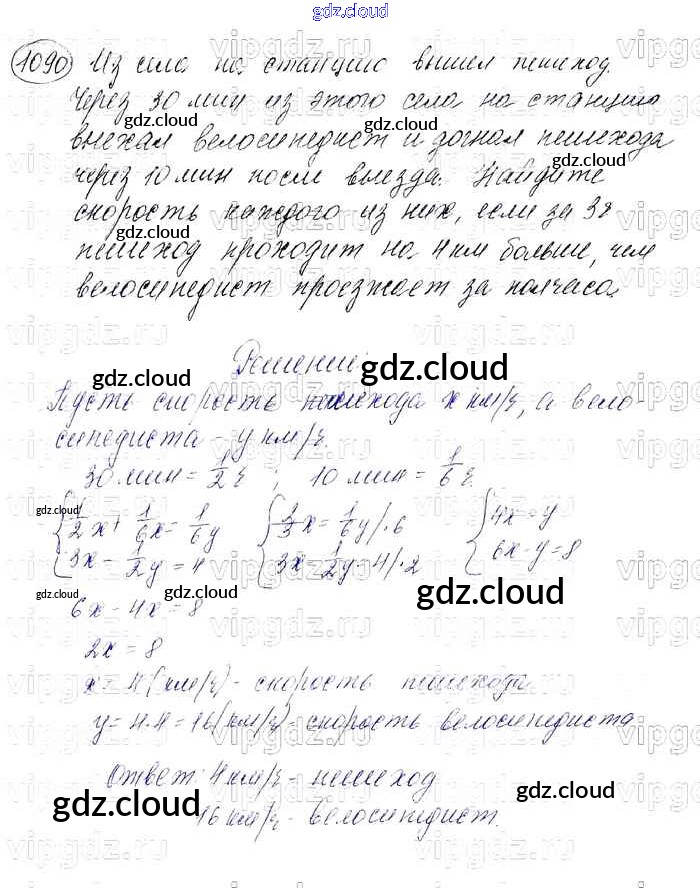 gdz.cloud
1090 Из села на станцию вышел пешеход.
Через 30 мин из этого села на станцию
выехал велосипедист и догнал пешехода
через 10 мин после выезда. Найдите
скорость каждого из них, если за 3ч
пешеход проходит на 4 км больше, чем
велосипедист проезжает за полчаса.
Решение:
Пусть скорость пешехода x км/ч, а вело-
сипедиста - y км/ч.
30 мин = 1/2 ч ; 10 мин = 1/6 ч.
{ 1/2 x + 1/6 x = 1/6 y { 2/3 x = 1/6 y /·6 { 4x = y
{ 3x - 1/2 y = 4 { 3x - 1/2 y = 4 /·2 { 6x - y = 8
6x - 4x = 8
2x = 8
x = 4 (км/ч) - скорость пешехода
y = 4·4 = 16 (км/ч) - скорость велосипедиста
Ответ: 4 км/ч - пешеход
16 км/ч - велосипедист.